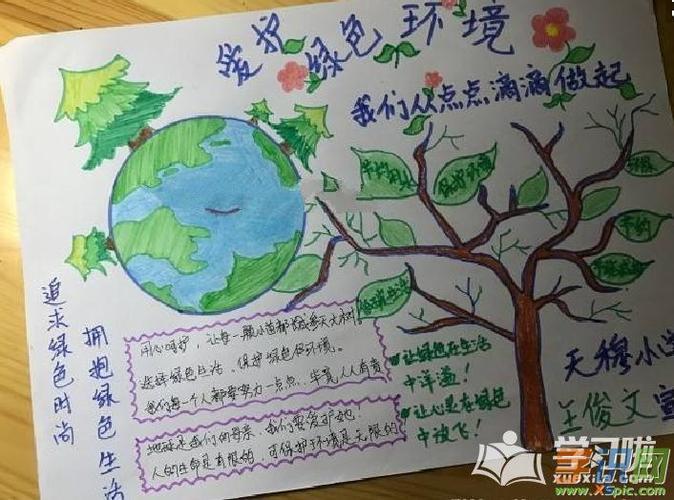 爱护绿色环境
我们从点点滴滴做起
节约用水
保护环境
节约
追求绿色时尚
拥抱绿色生活
用心呵护，让每一颗小苗都长成参天大树！
选择绿色生活，保护绿色的环境。
我们每一个人都要努力一点点，毕竟人人有责
地球是我们的母亲，我们要爱护她！
人的生命是有限的，可保护环境是无限的
让绿色在生活
中洋溢！
让心灵在绿色
中放飞！
天穆小学
王俊文
学习啦
xuexila.com
图片中国
www.xspic.com